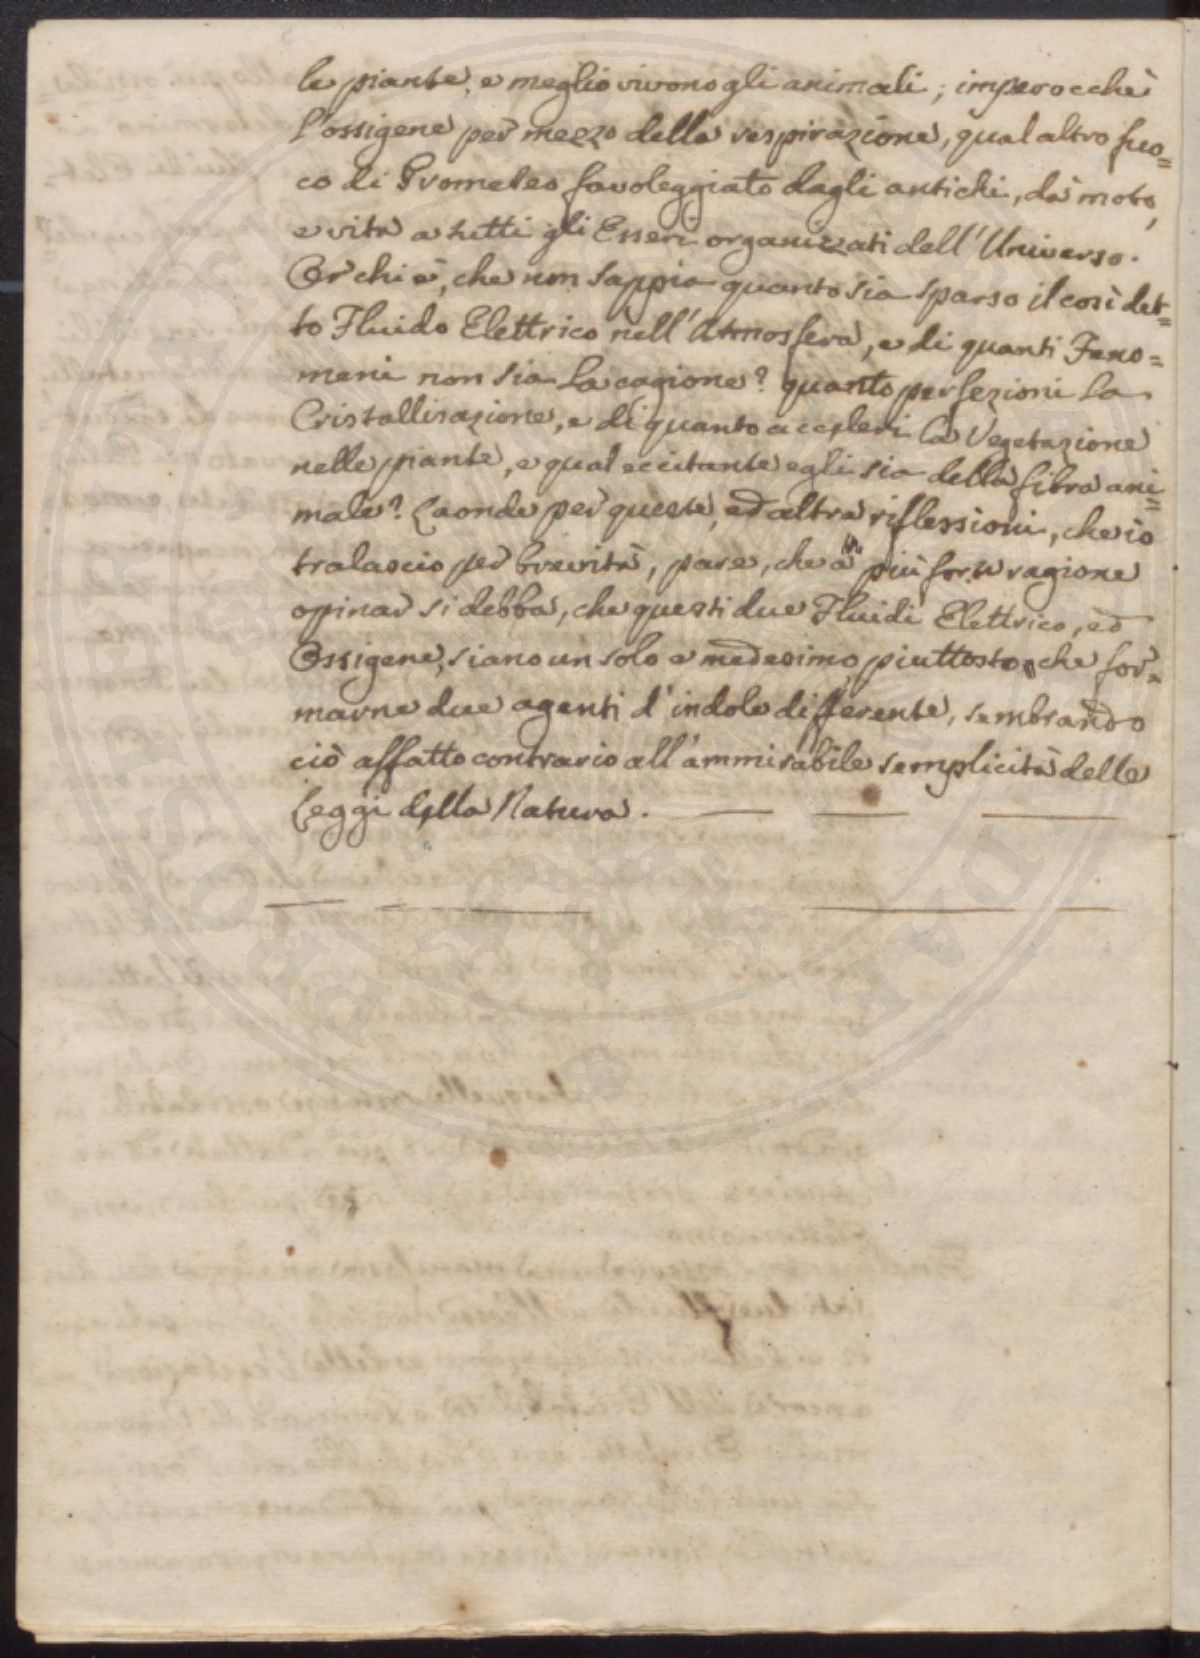 le piante, e meglio vivono gli animali; imperocchè
l'ossigene per mezzo della respirazione, qual altro fuo=
co di Prometeo favoleggiato dagli antichi, dà moto,
e vita a tutti gli Esseri organizzati dell'Universo.
Or chi è, che non sappia quanto sia sparso il così det=
to Fluido Elettrico nell'Atmosfera, e di quanti Feno=
meni non sia la cagione? quanto perfezioni la
Cristallisazione, e di quanto acceleri la Vegetazione
nelle piante, e qual eccitante egli sia della fibra ani=
male? Laonde per queste, ed altre riflessioni, che io
tralascio per brevità, pare, che a più forte ragione
opinar si debba, che questi due Fluidi Elettrico, ed
Ossigene, siano un solo e medesimo, piuttosto, che for=
marne due agenti d'indole differente, sembrando
ciò affatto contrario all'ammirabile semplicità delle
Leggi della Natura.